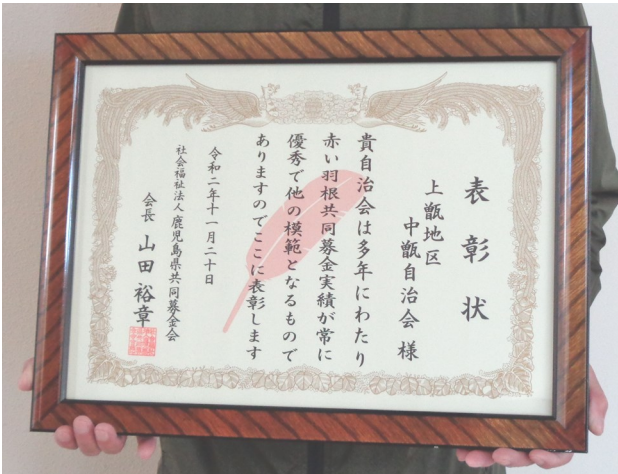 表彰状
上甑地区
中甑自治会 様
貴自治会は多年にわたり
赤い羽根共同募金実績が常に
優秀で他の模範となるもので
ありますのでここに表彰します
令和二年十一月二十日
社会福祉法人鹿児島県共同募金会
会長 山田裕章